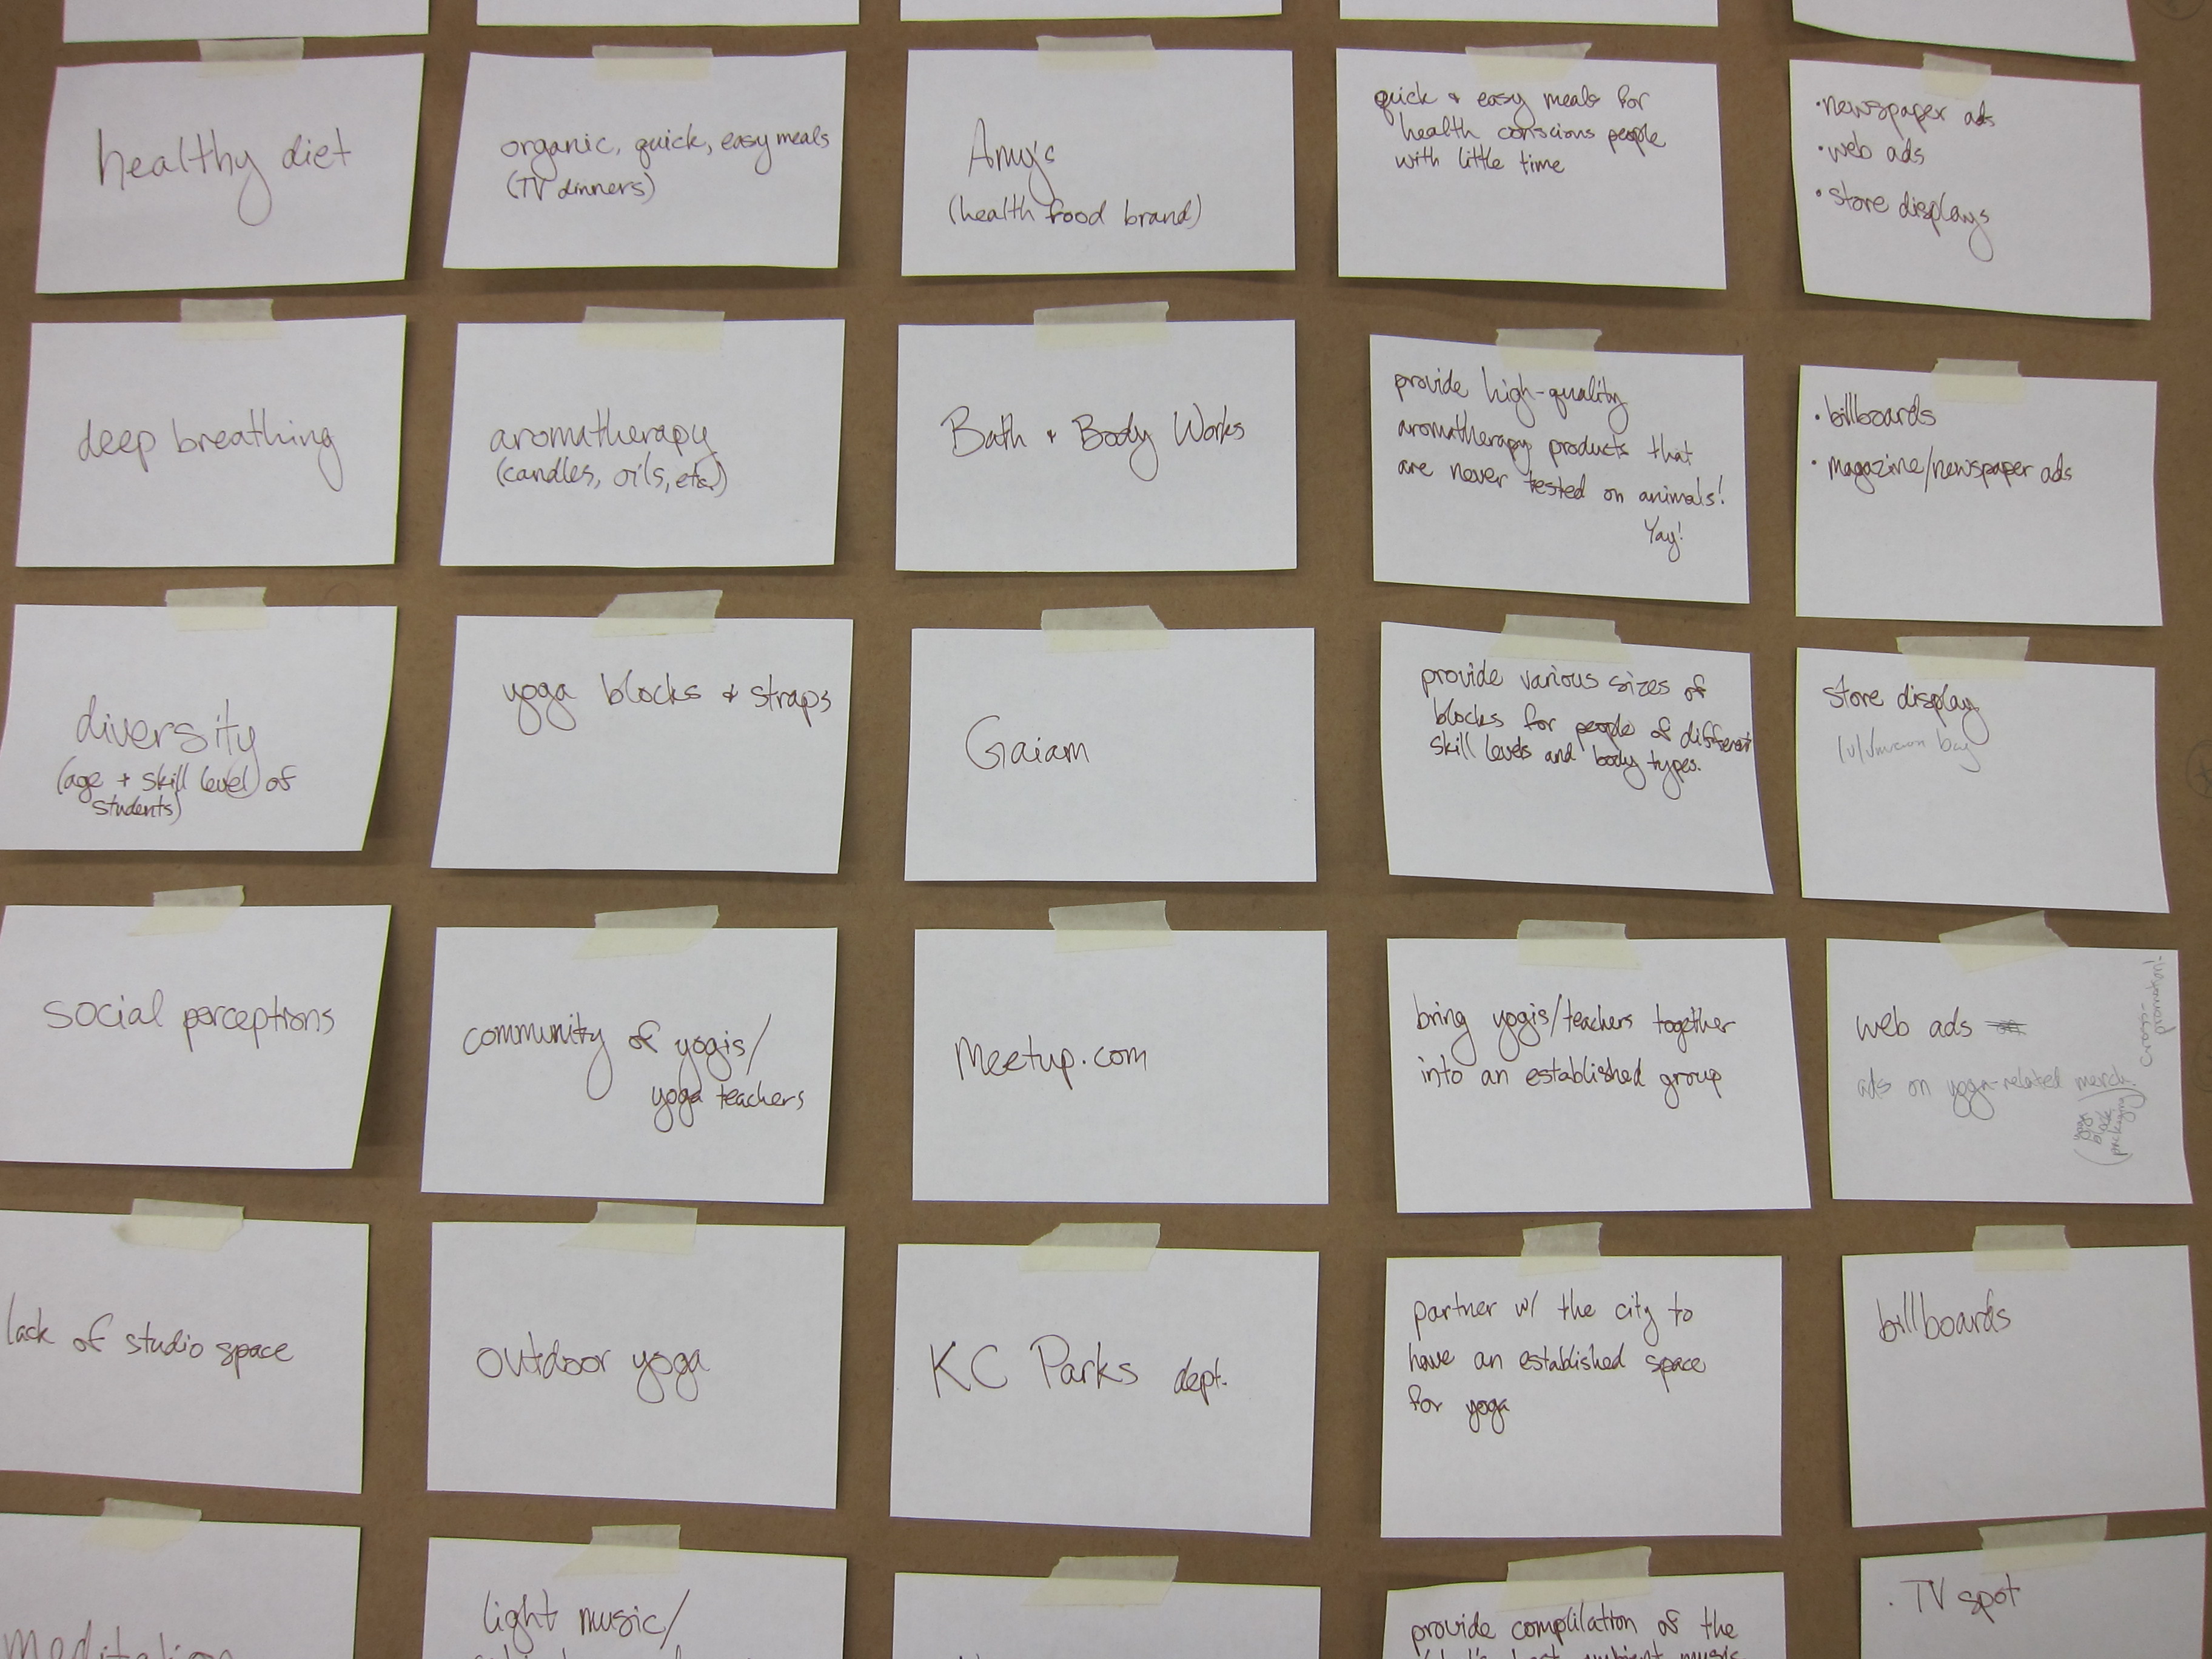 healthy diet
organic, quick, easy meals
(TV dinners)
Amy's
(health food brand)
quick + easy meals for
health conscious people
with little time
• newspaper ads
• web ads
• store displays
deep breathing
aromatherapy
(candles, oils, etc.)
Bath + Body Works
provide high-quality
aromatherapy products that
are never tested on animals!
Yay!
• billboards
• magazine/newspaper ads
diversity
(age + skill level of
students)
yoga blocks + straps
Gaiam
provide various sizes of
blocks for people of different
skill levels and body types.
store display
social perceptions
community of yogis/
yoga teachers
Meetup.com
bring yogis/teachers together
into an established group
web ads
ads on yoga-related merch!
(yoga
block
packaging)
cross-
promotion!
lack of studio space
outdoor yoga
KC Parks dept.
partner w/ the city to
have an established space
for yoga
billboards
meditation
light music/
provide complilation of the
best ambient music
• TV spot